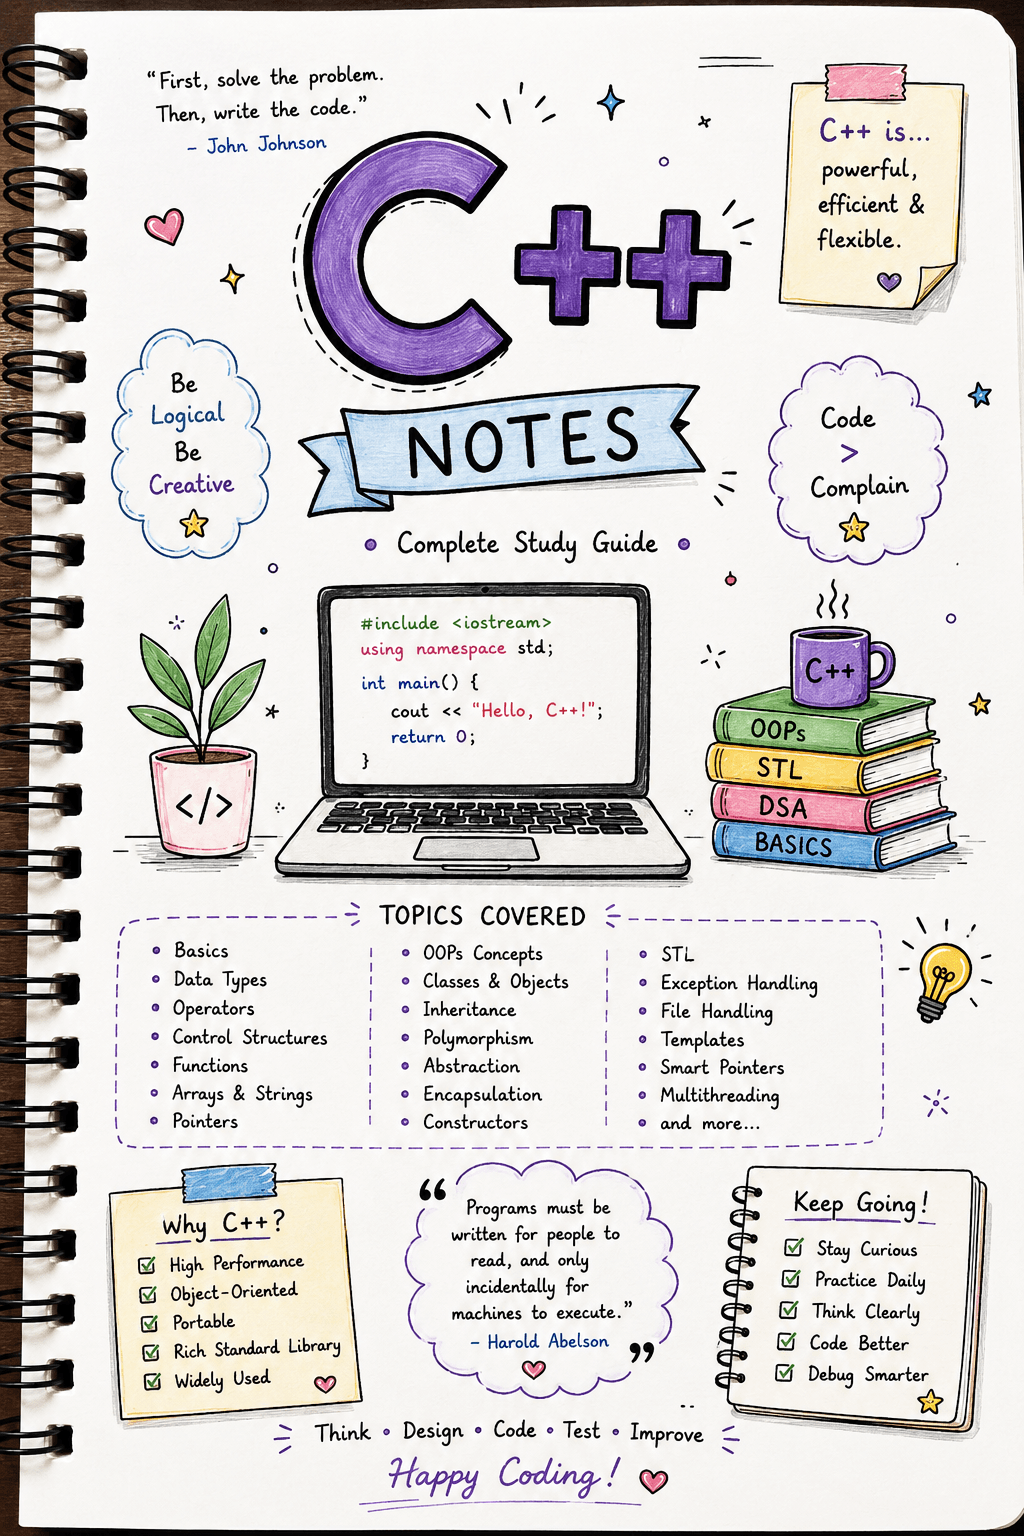 “First, solve the problem.
Then, write the code.”
- John Johnson
C++
C++ is...
powerful,
efficient &
flexible.
Be
Logical
Be
Creative
NOTES
Code
>
Complain
• Complete Study Guide •
#include <iostream>
using namespace std;
int main() {
cout << "Hello, C++!";
return 0;
}
</>
C++
OOPs
STL
DSA
BASICS
TOPICS COVERED
• Basics
• Data Types
• Operators
• Control Structures
• Functions
• Arrays & Strings
• Pointers
• OOPs Concepts
• Classes & Objects
• Inheritance
• Polymorphism
• Abstraction
• Encapsulation
• Constructors
• STL
• Exception Handling
• File Handling
• Templates
• Smart Pointers
• Multithreading
• and more...
Why C++?
High Performance
Object-Oriented
Portable
Rich Standard Library
Widely Used
“
Programs must be
written for people to
read, and only
incidentally for
machines to execute.”
- Harold Abelson
”
Keep Going!
Stay Curious
Practice Daily
Think Clearly
Code Better
Debug Smarter
Think • Design • Code • Test • Improve
Happy Coding!